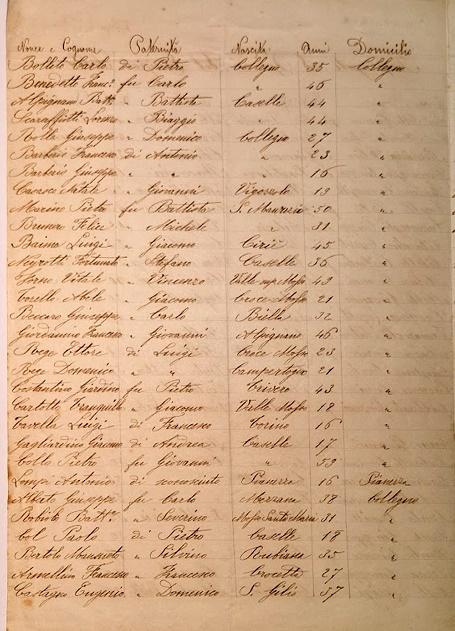 Nome e Cognome Paternità Nascita Anni Domicilio
Carlo di Pietro Collegno 35 Collegno
Benedetto Franc.º fu Carlo " 46 "
" Battista Caselle 44 "
Lorenzo " Biaggio " 44 "
Giuseppe " Domenico Collegno 27 "
Barberis Francesco di Antonio " 23 "
Barberis Giuseppe " " " 16 "
Natale " Giovanni 19 "
Marino Pietro fu Battista S. Maurizio 50 "
Bruna Felice " Michele " 31 "
Baima Luigi " Giacomo Ciriè 45 "
Fortunato " Stefano Caselle 36 "
Vitale " Vincenzo Valle 43 "
Torello " Giacomo Croce Mosso 21 "
Giuseppe " Carlo Biella 32 "
Giordanino Francesco " Giovanni Alpignano 46 "
Rege Ettore di Luigi Croce Mosso 23 "
Rege Domenico " " Campertogno 21 "
Costantino Giardino fu Pietro Trivero 43 "
Carlotto Tranquillo " Giacomo Valle Mosso 18 "
Tavella Luigi di Francesco Torino 16 "
Gagliardino Giacomo di Andrea Caselle 17 "
Collo Pietro fu Giovanni " 59 "
Antonio di sconosciuto Pianezza 16 Pianezza
Giuseppe fu Carlo 38 Collegno
Robiola Batt.ª " Severino Mosso Santa Maria 31 "
Col Paolo di Pietro Caselle 18 "
" Silvino Rubiana 35 "
Francesco " Francesco Crocetta 27 "
Castagno Eugenio " Domenico S. Gilio 37 "